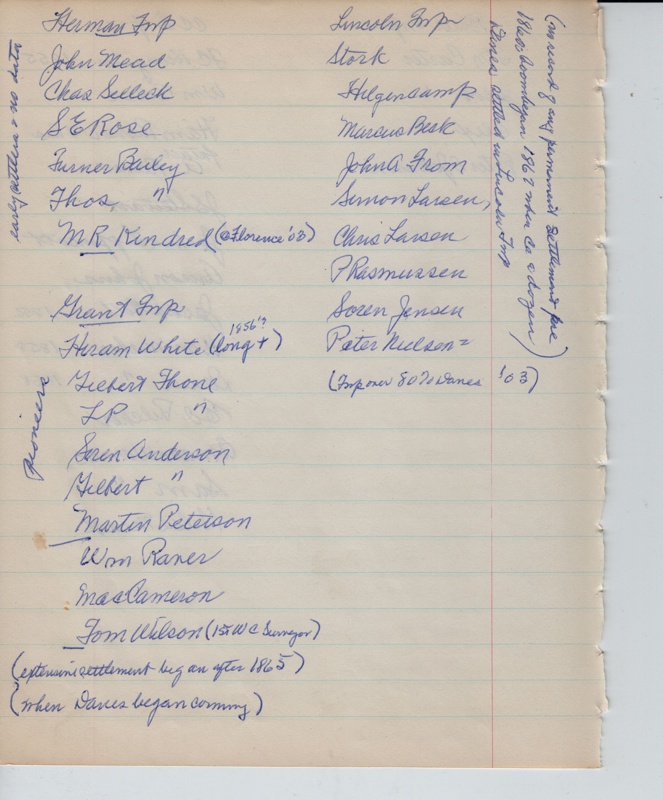 Herman Tmp
early settlers + no data
John Mead
Chas Selleck
S E Rose
Turner Bailey
Thos. "
M R Kindred (@ Florence '03)
Grant Tmp
Pioneers
Hiram White (long + 1856?)
Gilbert Thone
L P "
Soren Anderson
Gilbert "
Martin Peterson
Wm Raver
Mac Cameron
Tom Wilson (1st W C Surveyor)
(extensive settlement began after 1865)
(when Danes began coming)
Lincoln Tmp
Stork
Hilgencamp
Marcus Besk
John A From
Simon Larsen,
Chris Larsen
P Rasmussen
Soren Jensen
Peter Nielson =
(Tmp over 80% Danes '03)
(no record of any permanent settlement pre
1860, boom began 1867 when Co a dozen)
Danes settled in Lincoln Tmp